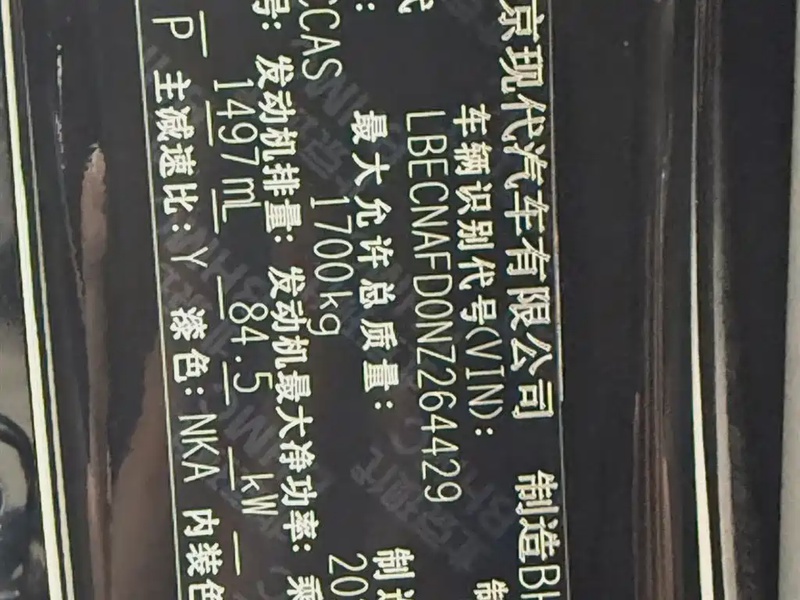 京现代汽车有限公司 制造
车辆识别代号(VIN): 制
LBECNAFD0NZ264429
最大允许总质量: 制
1700kg 20
CCAS
号: 发动机排量: 发动机最大净功率: 乘
1497mL 84.5 kW
P 主减速比: Y 漆色: NKA 内装色